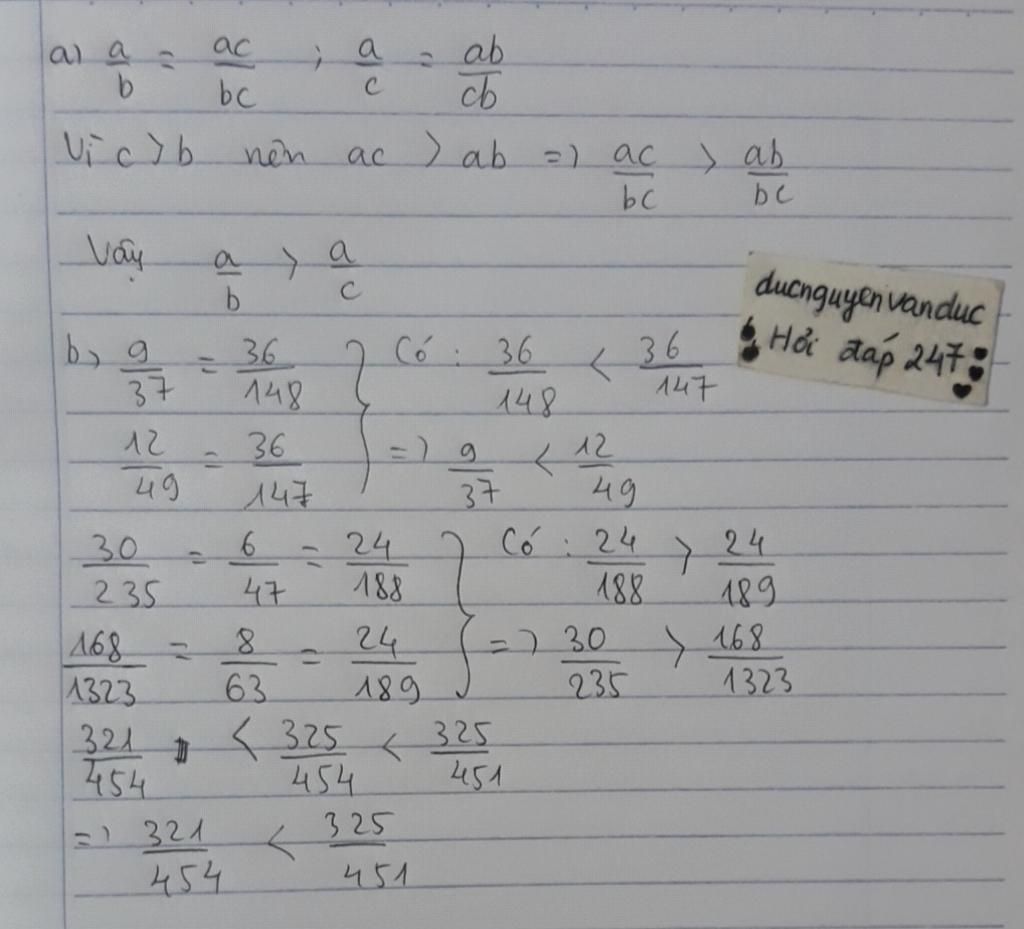 a) a/b = ac/bc ; a/c = ab/cb
Vì c > b nên ac > ab => ac/bc > ab/bc
Vậy a/b > a/c
ducnguyenvanduc
Hỏi đáp 247
b) 9/37 = 36/148 } Có : 36/148 < 36/147
12/49 = 36/147 } => 9/37 < 12/49
30/235 = 6/47 = 24/188 } Có : 24/188 > 24/189
168/1323 = 8/63 = 24/189 } => 30/235 > 168/1323
321/454 < 325/454 < 325/451
=> 321/454 < 325/451